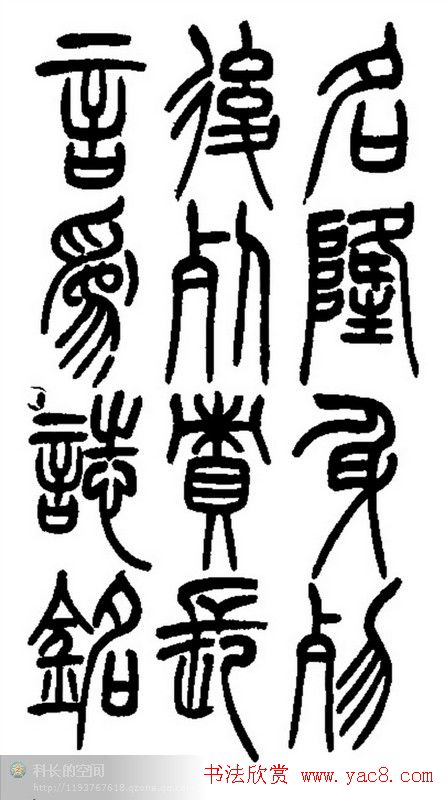 名隆身歾
後死責長
言爲誌銘
科长的空间
http://1193767618.qzone.qq.com
书法欣赏 www.yac8.com